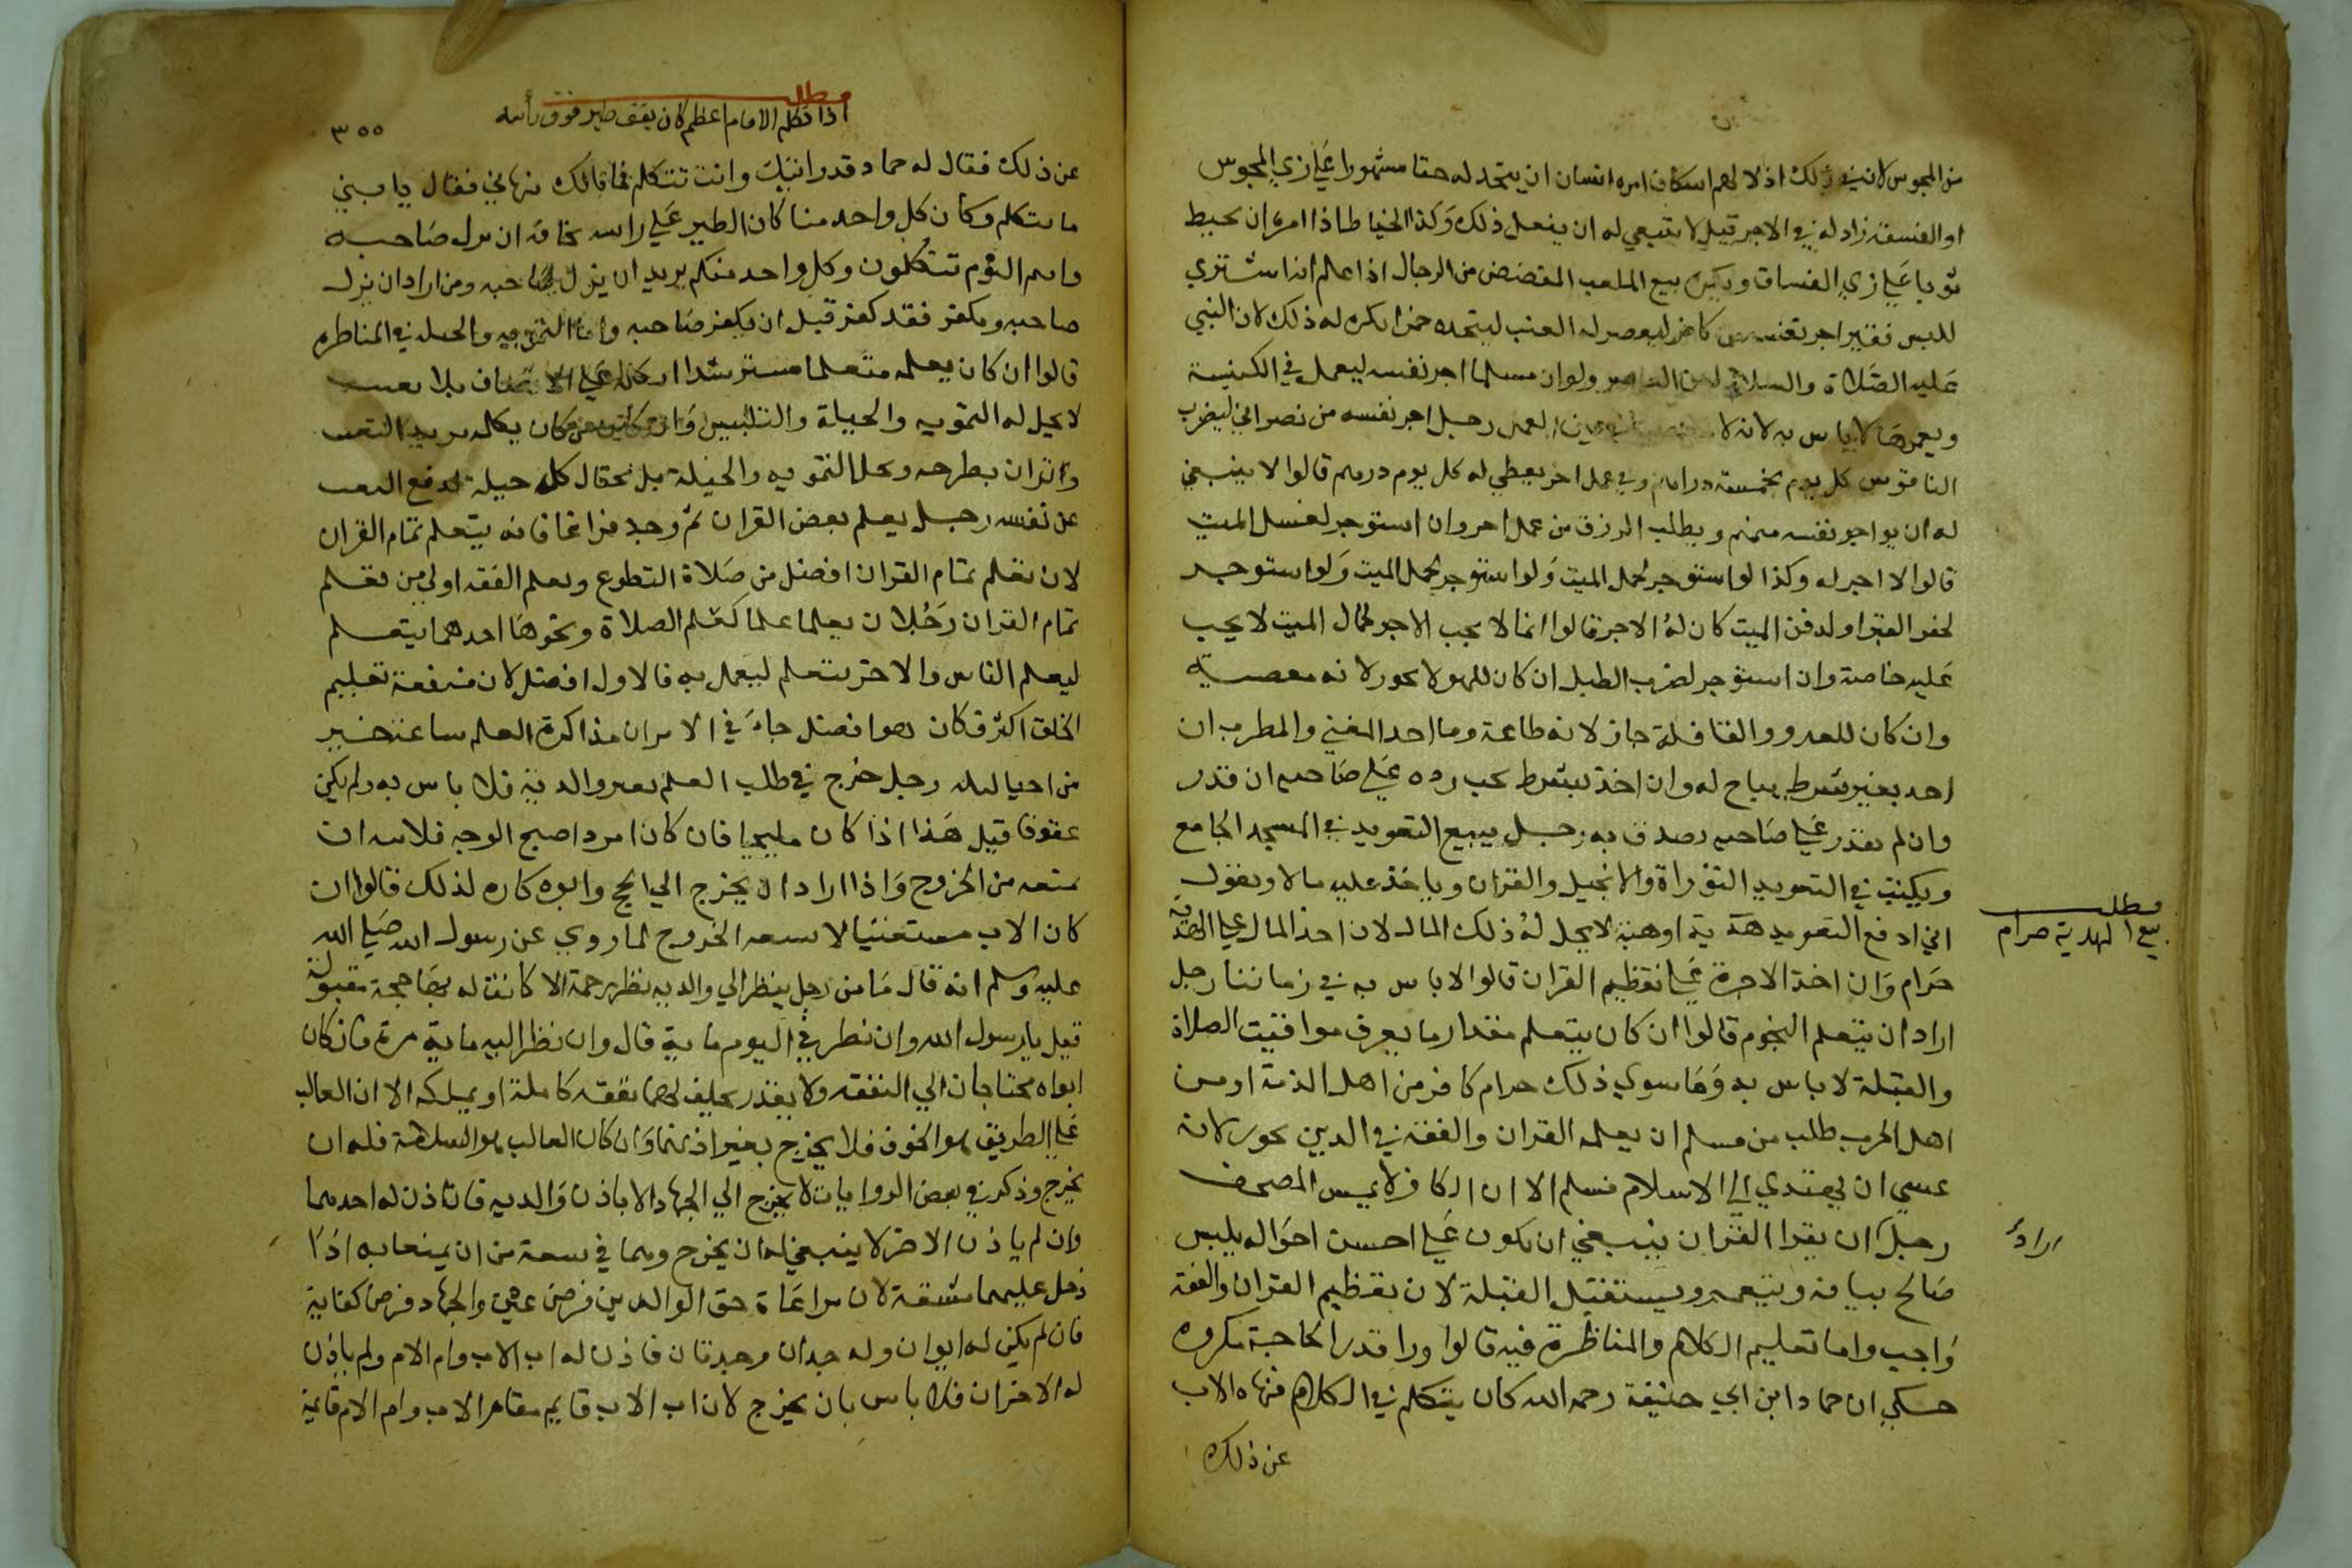 من المجوس لان في ذلك اذلا لهم اسكاف امره انسان ان يتخذ له خفا مشهورا علي زي المجوس
او الفسقة زاد له في الاجر قيل لا ينبغي له ان يفعل ذلك وكذا الخياط اذا امره ان يخيط
ثوبا علي زي الفساق ويكره بيع الملعب المفضض من الرجال اذا علم انه اشتري
للبس فقير اجر نفسه من كافر ليعصر له العنب ليتخذه خمرا يكره له ذلك لان النبي
عليه الصلاة والسلام لعن العاصر ولو ان مسلما اجر نفسه ليعمل في الكنيسة
ويعمرها لا باس به لانه لا العمل رجل اجر نفسه من نصراني ليضرب
الناقوس كل يوم بخمسة دراهم وفي عمل اخر يعطي له كل يوم درهم قالوا لا ينبغي
له ان يواجر نفسه منهم ويطلب الرزق من عمل اخر وان استوجر لغسل الميت
قالوا لا اجر له وكذا لو استوجر لحمل الميت ولو استوجر لحمل الميت ولو استوجر
لحفر القبر او لدفن الميت كان له الاجر قالوا انما لا يجب الاجر لحمال الميت لا يجب
عليه خاصة وان استوجر لضرب الطبل ان كان للهو لا يجوز لانه معصية
وان كان للعدو والقافلة جاز لانه طاعة وما اخذ المغني والمطرب ان
اخذ بغير شرط يباح له وان اخذ بشرط يجب رده علي صاحبه ان قدر
وان لم يقدر علي صاحبه يصدق به رجل يبيع التعويذ في المسجد الجامع
ويكتب في التعويذ التوراة والانجيل والقران وياخذ عليه مالا ويقول
اني ادفع التعويذ هدية او هبة لا يحل له ذلك المال لان اخذ المال علي الهدية
حرام وان اخذ الاجرة علي تعظيم القران قالوا لا باس به في زماننا رجل
اراد ان يتعلم النجوم قالوا ان كان يتعلم مقدار ما يعرف مواقيت الصلاة
والقبلة لا باس به وما سوي ذلك حرام كافر من اهل الذمة او من
اهل الحرب طلب من مسلم ان يعلمه القران والفقه في الدين يجوز لانه
عسي ان يهتدي الي الاسلام فسلم الا ان الكافر لا يمس المصحف
رجل ان يقرا القران ينبغي ان يكون علي احسن احواله يلبس
صالح ثيابه ويتعمم ويستقبل القبلة لان تعظيم القران والفقه
واجب واما تعليم الكلام والمناظرة فيه قالوا ورا قدر الحاجة مكروه
حكي ان حماد ابن ابي حنيفة رحمه الله كان يتكلم في الكلام فنهاه الاب
عن ذلك
مطلب
بيع الهدية حرام
اراد
مطلب
اذا تكلم الامام اعظم كان يقف طير فوق رأسه
٣٥٥
عن ذلك فقال له حماد قد رايتك وانت تتكلم فما بالك تنهاني فقال يا بني
ما نتكلم وكان كل واحد منا كان الطير علي راسه مخافة ان يزل صاحبه
وانتم اليوم تتكلمون وكل واحد منكم يريد ان يزل صاحبه ومن اراد ان يزل
صاحبه ويكفر فقد كفر قبل ان يكفر صاحبه واما التمويه والحيلة في المناظرة
قالوا ان كان يعلمه متعلما مسترشدا علي الانصاف بلا تعنت
لا يحل له التمويه والحيلة والتلبيس وان كان يكلمه يريد التعنت
واراد ان يطرحه ويحل التمويه والحيلة بل يحتال كل حيلة لدفع التعنت
عن نفسه رجل يعلم بعض القران ثم وجد فراغا فانه يتعلم تمام القران
لان تعلم تمام القران افضل من صلاة التطوع وتعلم الفقه اولي من تعلم
تمام القران رجلان تعلما علما كعلم الصلاة ونحوها احدهما يتعلم
ليعلم الناس والاخر يتعلم ليعمل به فالاول افضل لان منفعة تعليم
الخلق اكثر فكان هو افضل جاء في الاثر ان مذاكرة العلم ساعة خير
من احيا ليلة رجل خرج في طلب العلم بغير والديه فلا باس به ولم يكن
عقوقا قيل هذا اذا كان ملتحيا فان كان امرد اصبح الوجه فلابيه ان
يمنعه من الخروج واذا اراد ان يخرج الي الحج وابوه كاره لذلك قالوا ان
كان الاب مستغنيا لا يسعه الخروج لما روي عن رسول الله صلي الله
عليه وسلم انه قال ما من رجل ينظر الي والديه نظر رحمة الا كانت له بها حجة مقبولة
قيل يا رسول الله وان نظر في اليوم ماية قال وان نظر اليه ماية مرة فان كان
ابواه محتاجان الي النفقة ولا يقدر يخلف لهما نفقة كاملة او يملكه الا ان الغالب
علي الطريق هو الخوف فلا يخرج بغير اذنهما وان كان الغالب هو السلامة فله ان
يخرج وذكر في بعض الروايات لا يخرج الي الجهاد الا باذن والديه فان اذن له احدهما
وان لم ياذن الاخر لا ينبغي له ان يخرج وهما في سعة من ان يمنعا به اذا
دخل عليهما مشقة لان مراعاة حق الوالدين فرض عين والجهاد فرض كفاية
فان لم يكن له ابوان وله جدان وجدتان فاذن له اب الاب وام الام ولم ياذن
له الاخران فلا باس بان يخرج لان اب الاب قايم مقام الاب وام الام قايمة